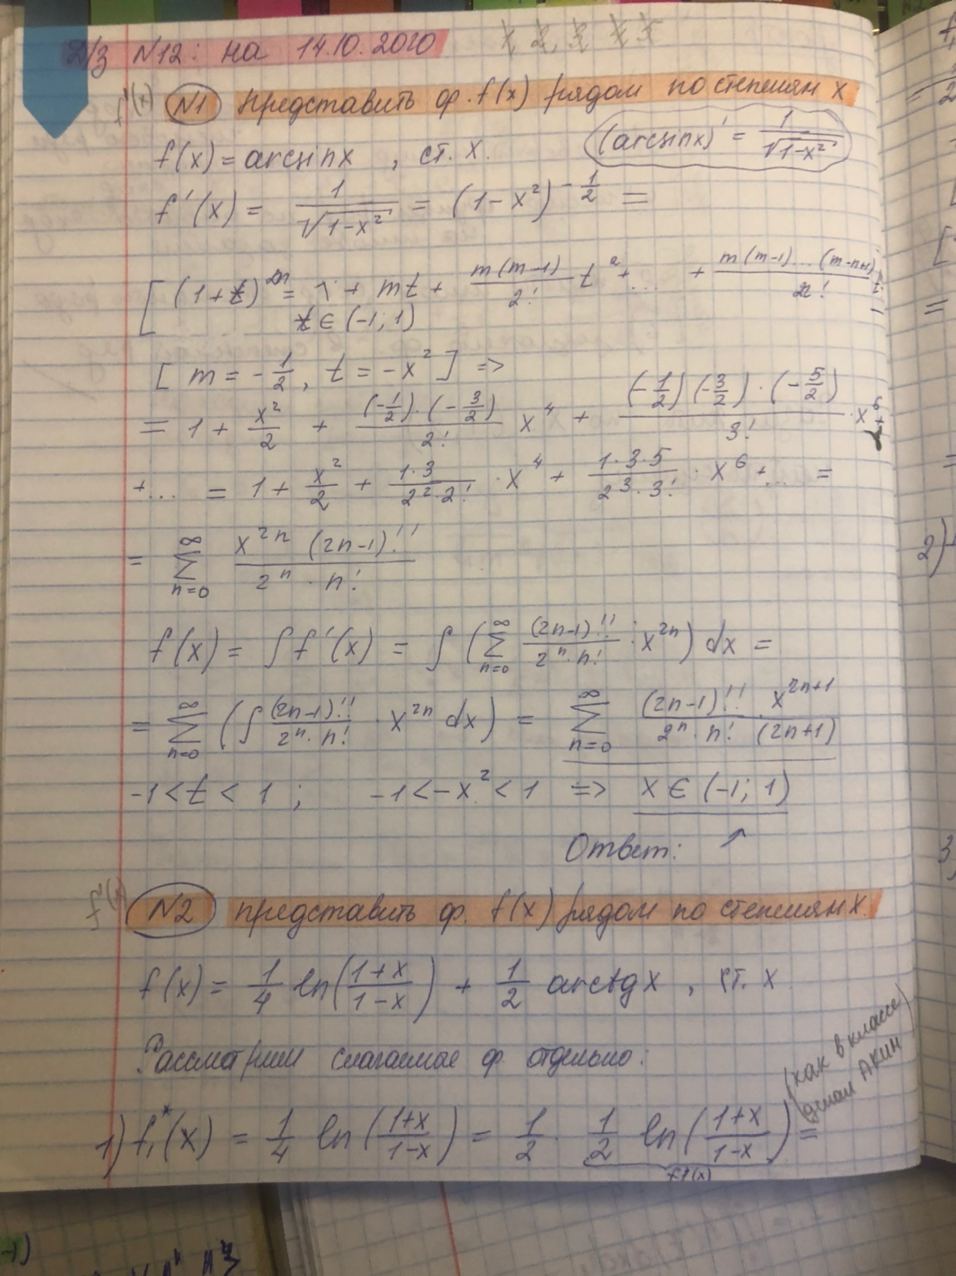 Д/З N12: на 14.10.2020
f'(x) N1 представить ф. f(x) рядом по степеням x
f(x) = arcsinx , ст. x. (arcsinx)' = 1/√(1-x²)
f'(x) = 1/√(1-x²) = (1-x²)^(-1/2) =
[ (1+t)^m = 1 + mt + m(m-1)/2! t² + ... + m(m-1)...(m-n+1)/n!
t ∈ (-1; 1)
[ m = -1/2, t = -x² ] =>
= 1 + x²/2 + (-1/2)·(-3/2)/2! x⁴ + (-1/2)(-3/2)·(-5/2)/3! · x⁶ +
+... = 1 + x²/2 + 1·3/(2²·2!) · x⁴ + 1·3·5/(2³·3!) · x⁶ +... =
= ∑_{n=0}^{∞} x^{2n} (2n-1)!!/(2ⁿ · n!)
f(x) = ∫f'(x) = ∫ (∑_{n=0}^{∞} (2n-1)!!/(2ⁿ·n!) · x^{2n}) dx =
= ∑_{n=0}^{∞} (∫ (2n-1)!!/(2ⁿ·n!) · x^{2n} dx) = ∑_{n=0}^{∞} (2n-1)!! · x^{2n+1}/(2ⁿ · n! (2n+1))
-1 < t < 1 ; -1 < -x² < 1 => x ∈ (-1; 1)
Ответ: ↑
f'(x) N2 представить ф. f(x) рядом по степеням x.
f(x) = 1/4 ln((1+x)/(1-x)) + 1/2 arctgx , ст. x
Рассмотрим слагаемые ф. отдельно:
(как в классе
1) f₁*(x) = 1/4 ln((1+x)/(1-x)) = 1/2 · 1/2 ln((1+x)/(1-x)) =
f1(x)
2)
3)